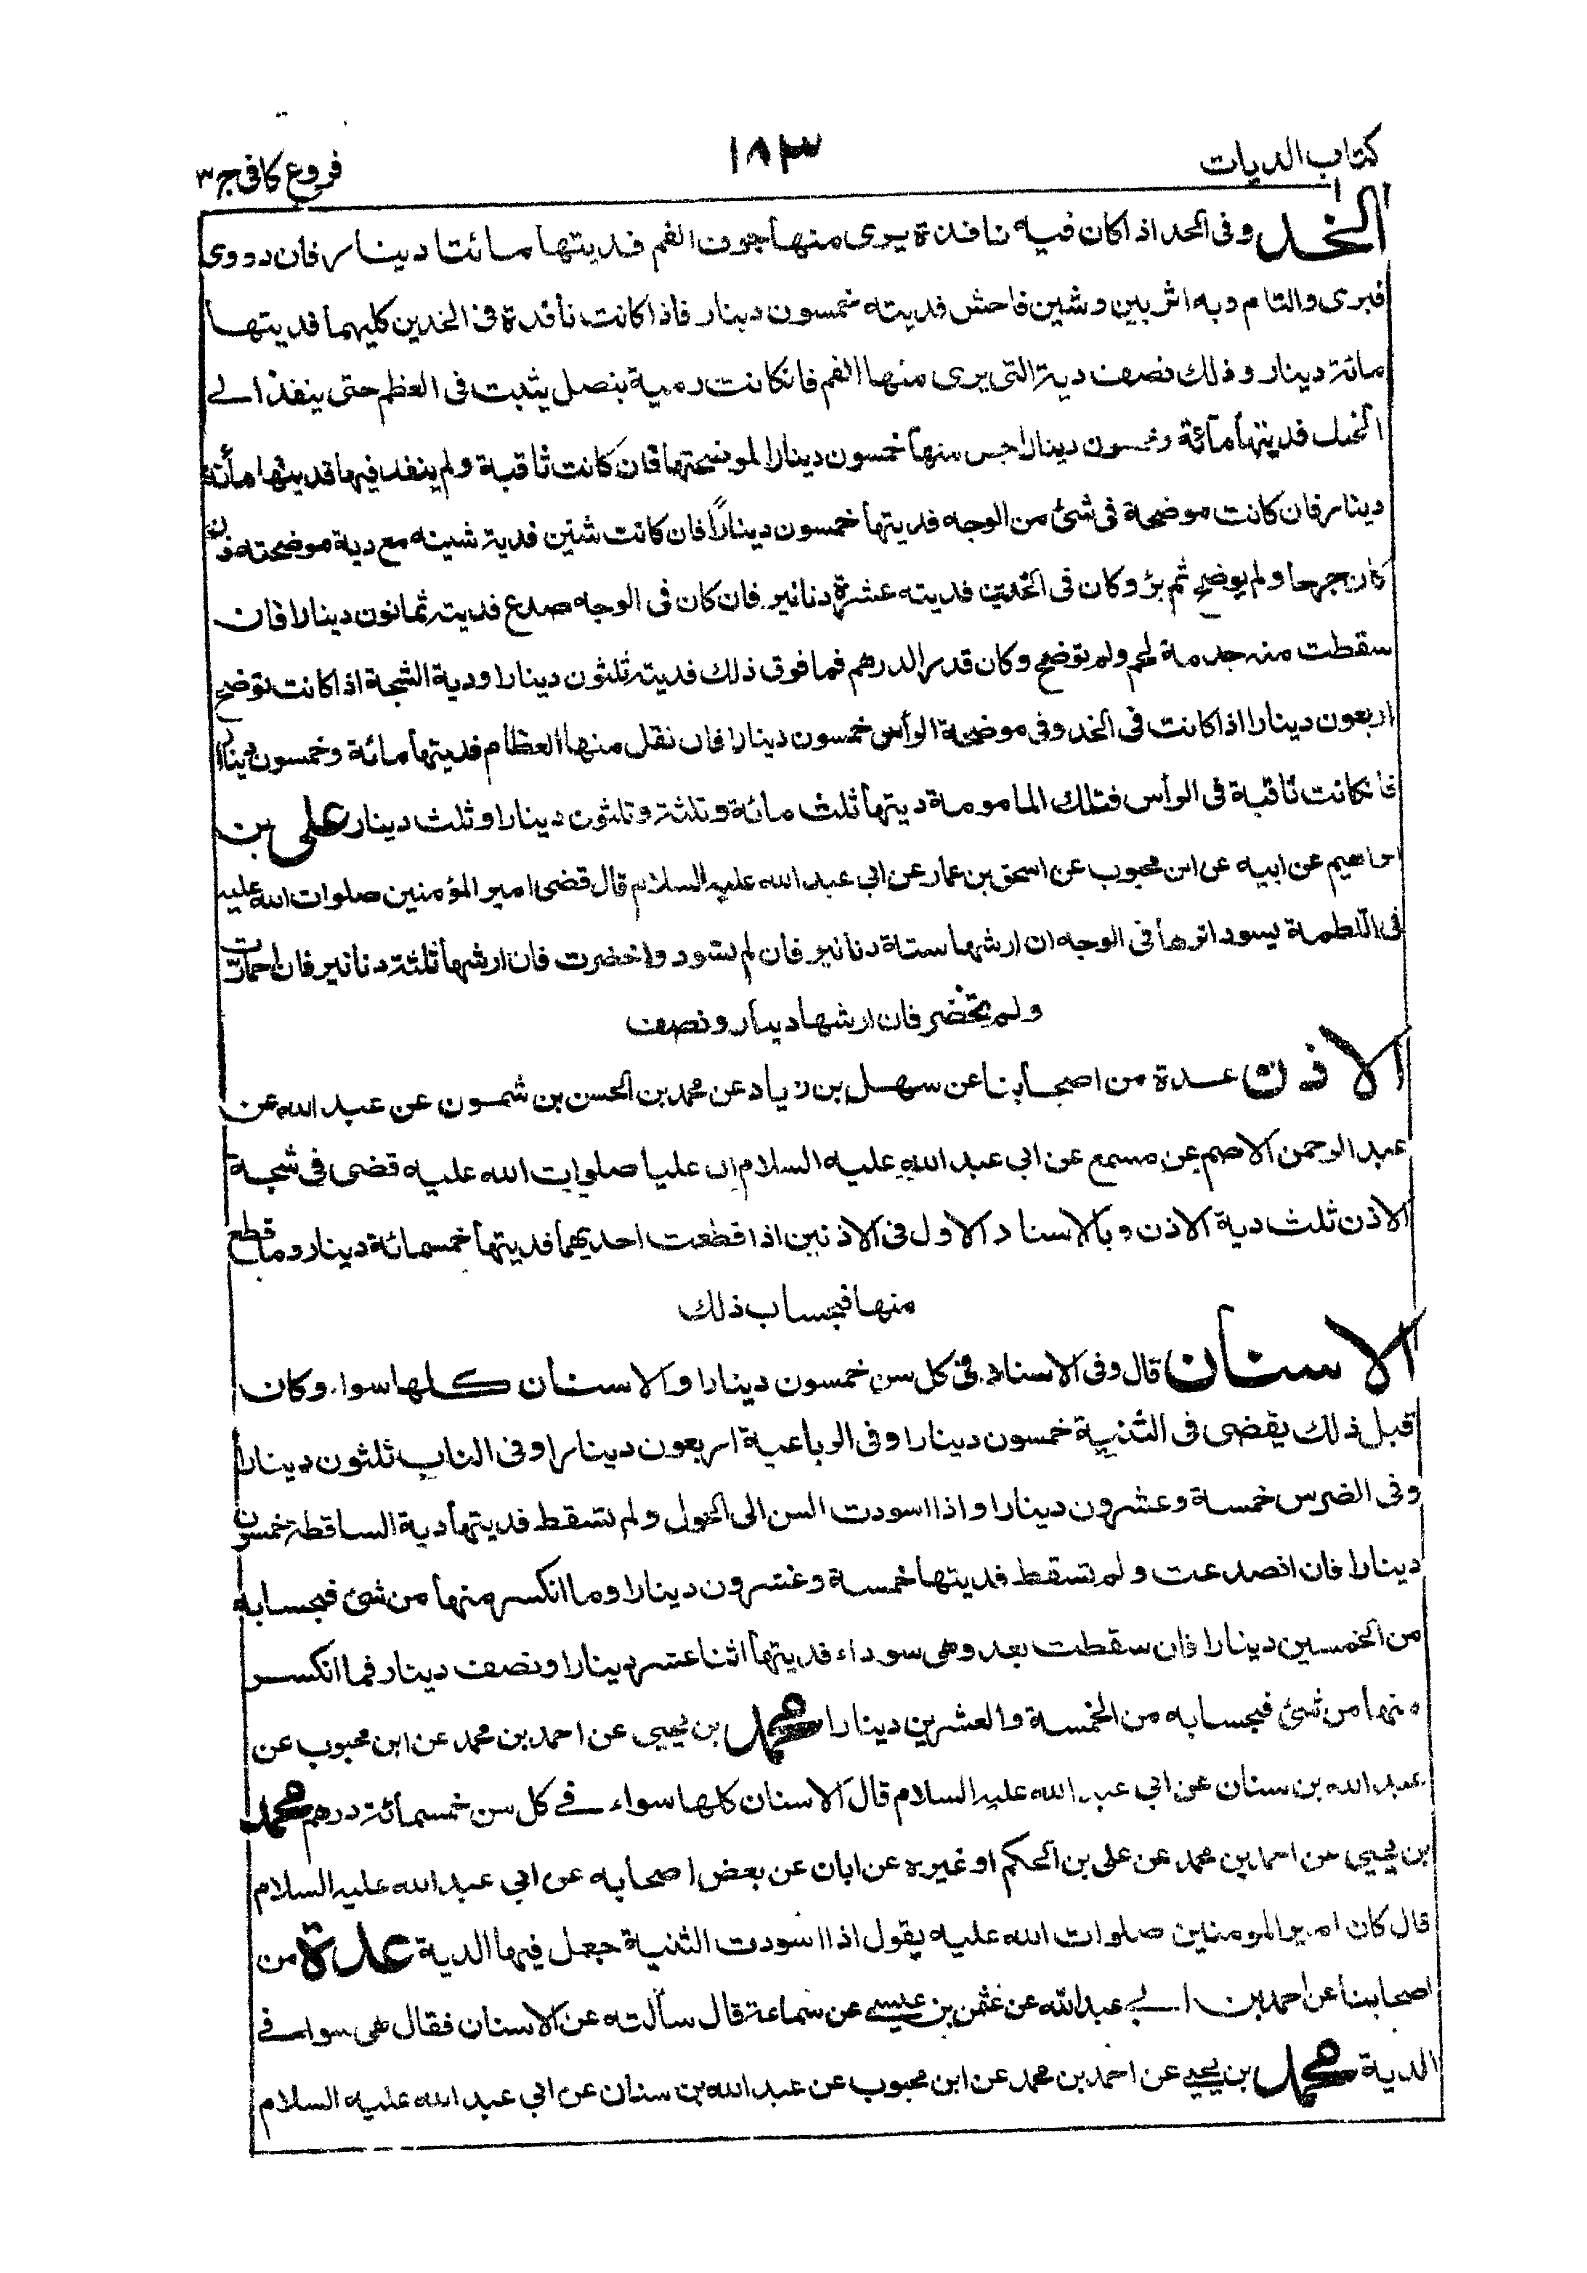 كتاب الديات
١٨٣
فروع كافى ج ٣
الخد وفى الخد اذا كان فيه نافذة يرى منها جوف الفم فديتها مائتا دينار فان دووى
فبرى والتام وبه اثر بين وشين فاحش فديته خمسون دينار فاذا كانت نافذة فى الخدين كليهما فديتها
مائة دينار وذلك نصف دية التى يرى منها الفم فانكانت رمية بنصل يثبت فى العظم حتى ينفذ الى
الحنك فديتها مائة وخمسون دينارا جعل منها خمسون دينارا لموضحتها فان كانت ثاقبة ولم ينفذ فيها فديتها مائة
دينار فان كانت موضحة فى شئ من الوجه فديتها خمسون دينارًا فان كانت شئين فدية شينه مع دية موضحته فان
كان جرحا ولم يوضح ثم برؤ وكان فى الخدين فديته عشرة دنانير فان كان فى الوجه صدع فديته ثمانون دينارا فان
سقطت منه جدمة لحم ولم توضح وكان قدر الدرهم فما فوق ذلك فديته ثلثون دينارا ودية الشجة اذا كانت توضح
اربعون دينارا اذا كانت فى الخد وفى موضحة الرأس خمسون دينارا فان نقل منها العظام فديتها مائة وخمسون دينارا
فانكانت ثاقبة فى الرأس فتلك المامومة ديتها ثلث مائة وثلثة وثلثون دينارا وثلث دينار على بن
ابراهيم عن ابيه عن ابن محبوب عن اسحق بن عمار عن ابى عبد الله عليه السلام قال قضى امير المؤمنين صلوات الله عليه
فى اللطمة يسود اثرها فى الوجه ان ارشها ستة دنانير فان لم تسود واخضرت فان ارشها ثلثة دنانير فان احمارت
ولم يخضر فان ارشها دينار ونصف
الاذن عدة من اصحابنا عن سهل بن زياد عن محمد بن الحسن بن شمون عن عبد الله عن
عبد الرحمن الاصم عن مسمع عن ابى عبد الله عليه السلام ان عليا صلوات الله عليه قضى فى شجة
الاذن ثلث دية الاذن وبالاسناد الاول فى الاذنين اذا قطعت احديهما فديتها خمسمائة دينار وما قطع
منها فبحساب ذلك
الاسنان قال وفى الاسنان فى كل سن خمسون دينارا والاسنان كلها سواء وكان
قبل ذلك يقضى فى الثنية خمسون دينارا وفى الرباعية اربعون دينارا وفى الناب ثلثون دينارا
وفى الضرس خمسة وعشرون دينارا واذا اسودت السن الى الحول ولم تسقط فديتها دية الساقطة خمسون
دينارا فان انصدعت ولم تسقط فديتها خمسة وعشرون دينارا وما انكسر منها من شئ فبحسابه
من الخمسين دينارا فان سقطت بعد وهى سوداء فديتها اثنا عشر دينارا ونصف دينار فما انكسر
منها من شئ فبحسابه من الخمسة والعشرين دينارا محمد بن يحيى عن احمد بن محمد عن ابن محبوب عن
عبد الله بن سنان عن ابى عبد الله عليه السلام قال الاسنان كلها سواء فى كل سن خمسمائة درهم محمد
بن يحيى عن احمد بن محمد عن على بن الحكم او غيره عن ابان عن بعض اصحابه عن ابى عبد الله عليه السلام
قال كان امير المومنين صلوات الله عليه يقول اذا اسودت الثنية جعل فيها الدية عدة من
اصحابنا عن احمد بن ابى عبد الله عن عثمن بن عيسى عن سماعة قال سألته عن الاسنان فقال هى سواء فى
الدية محمد بن يحيى عن احمد بن محمد عن ابن محبوب عن عبد الله بن سنان عن ابى عبد الله عليه السلام